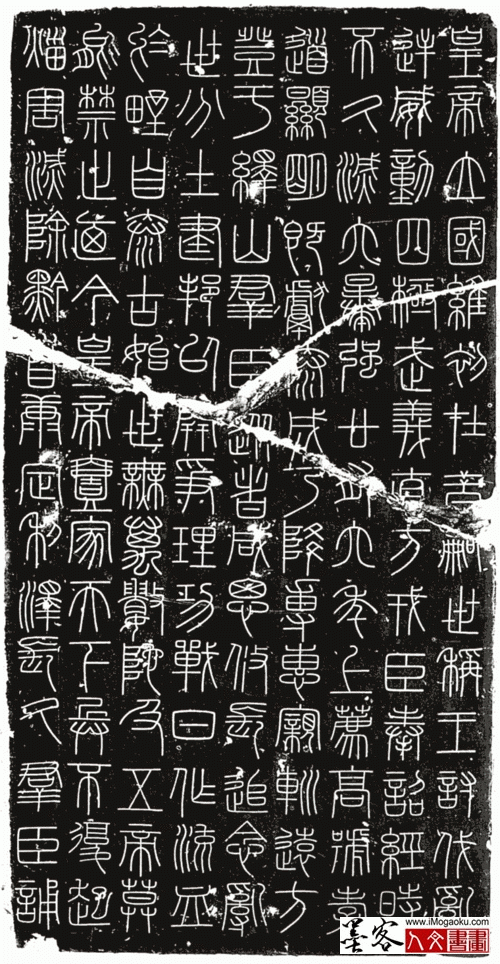 皇帝立國維初在昔嗣世稱王討伐亂
逆威動四極武義直方戎臣奉詔經時
不久滅六暴強廿有六年上薦高號孝
道顯明既獻泰成乃降專惠親巡遠方
登于繹山群臣從者咸思攸長追念亂
世分土建邦以開爭理功戰日作流血
於野自泰古始世無萬數陀及五帝莫
能禁止迺今皇帝壹家天下兵不復起
災害滅除黔首康定利澤長久群臣誦
墨客
www.iMogaoku.com
人文書畫